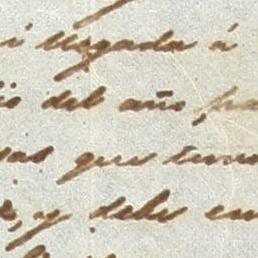 i llegada á
del año, pa
que tuve
y debe en